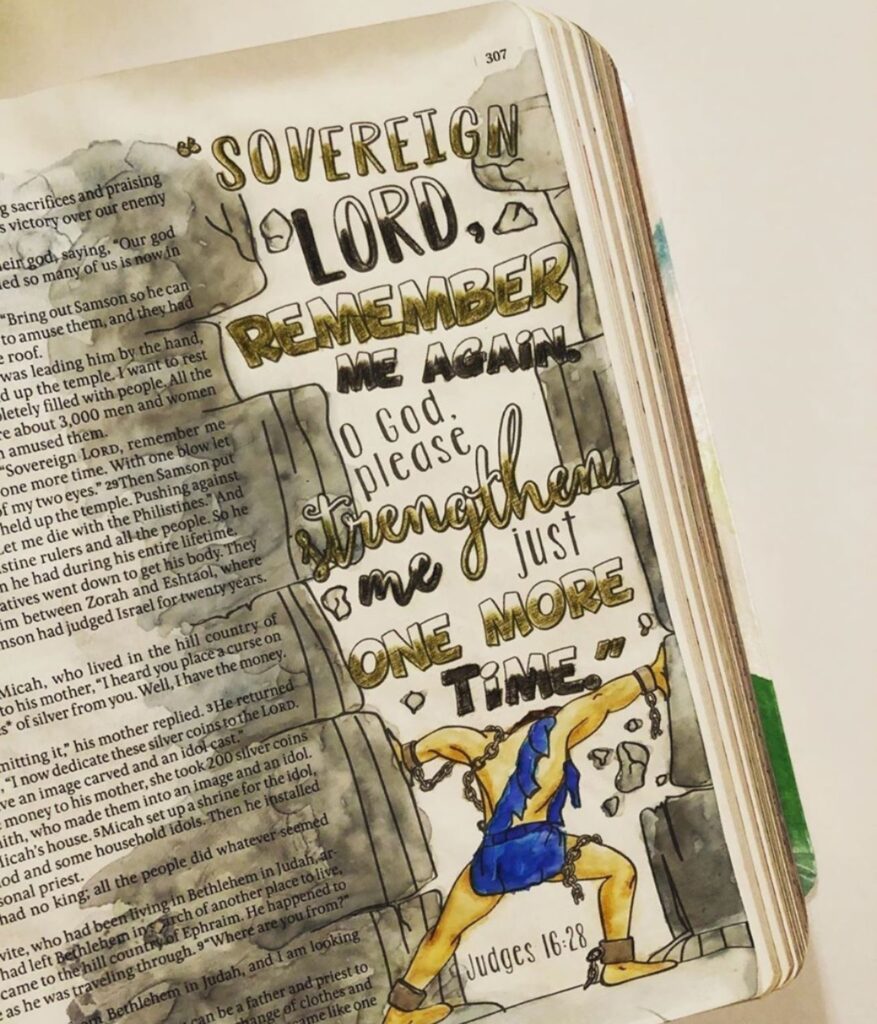 307
“SOVEREIGN
LORD,
REMEMBER
ME AGAIN.
O GOD,
please
strengthen
me just
ONE MORE
TIME.”
Judges 16:28
g sacrifices and praising
s victory over our enemy
heir god, saying, “Our god
ed so many of us is now in
“Bring out Samson so he can
to amuse them, and they had
roof.
was leading him by the hand,
d up the temple. I want to rest
pletely filled with people. All the
re about 3,000 men and women
amused them.
“Sovereign LORD, remember me
one more time. With one blow let
of my two eyes.” 29Then Samson put
held up the temple. Pushing against
Let me die with the Philistines.” And
stine rulers and all the people. So he
n he had during his entire lifetime.
atives went down to get his body. They
im between Zorah and Eshtaol, where
mson had judged Israel for twenty years.
Micah, who lived in the hill country of
to his mother, “I heard you place a curse on
s* of silver from you. Well, I have the money.
mitting it,” his mother replied. 3He returned
“I now dedicate these silver coins to the LORD.
ve an image carved and an idol cast.”
money to his mother, she took 200 silver coins
ith, who made them into an image and an idol.
Micah’s house. 5Micah set up a shrine for the idol,
od and some household idols. Then he installed
sonal priest.
had no king; all the people did whatever seemed
vite, who had been living in Bethlehem in Judah, ar-
had left Bethlehem in search of another place to live,
came to the hill country of Ephraim. He happened to
as he was traveling through. 9“Where are you from?”
Bethlehem in Judah, and I am looking
can be a father and priest to
change of clothes and
came like one